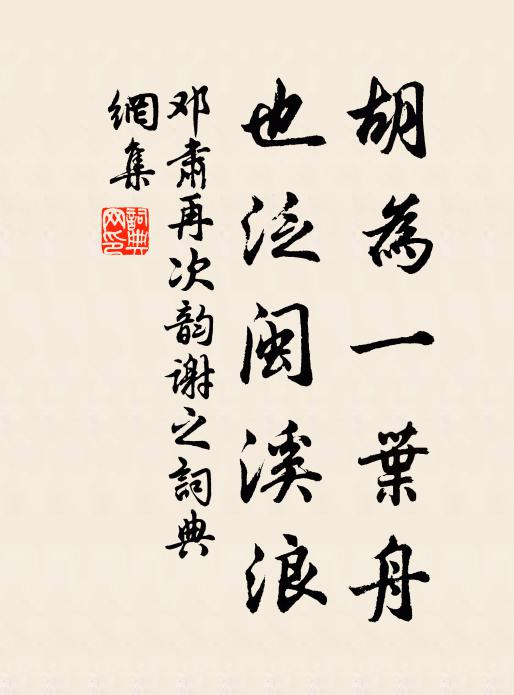 胡為一葉舟
也泛闽溪浪
邓肃再次韵谢之詞典
網集
詞典
网印